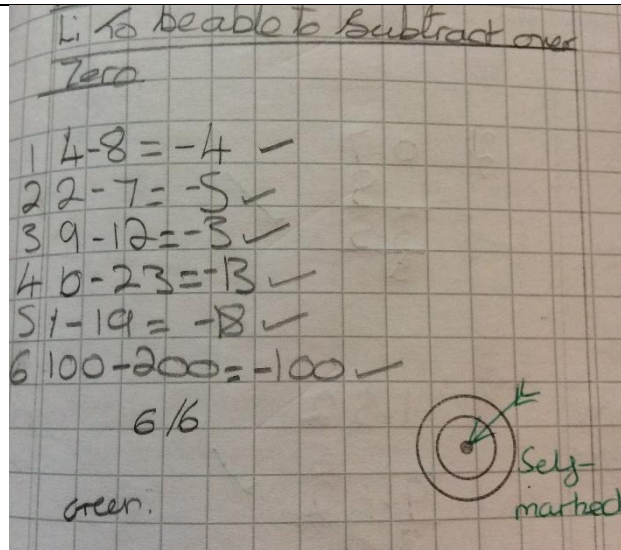 L: To be able to Subtract over
Zero
1 4-8 = -4 ✓
2 2-7 = -5 ✓
3 9-12 = -3 ✓
4 10-23 = -13 ✓
5 1-19 = -18 ✓
6 100-200 = -100 ✓
6/6
Green.
Self-
marked